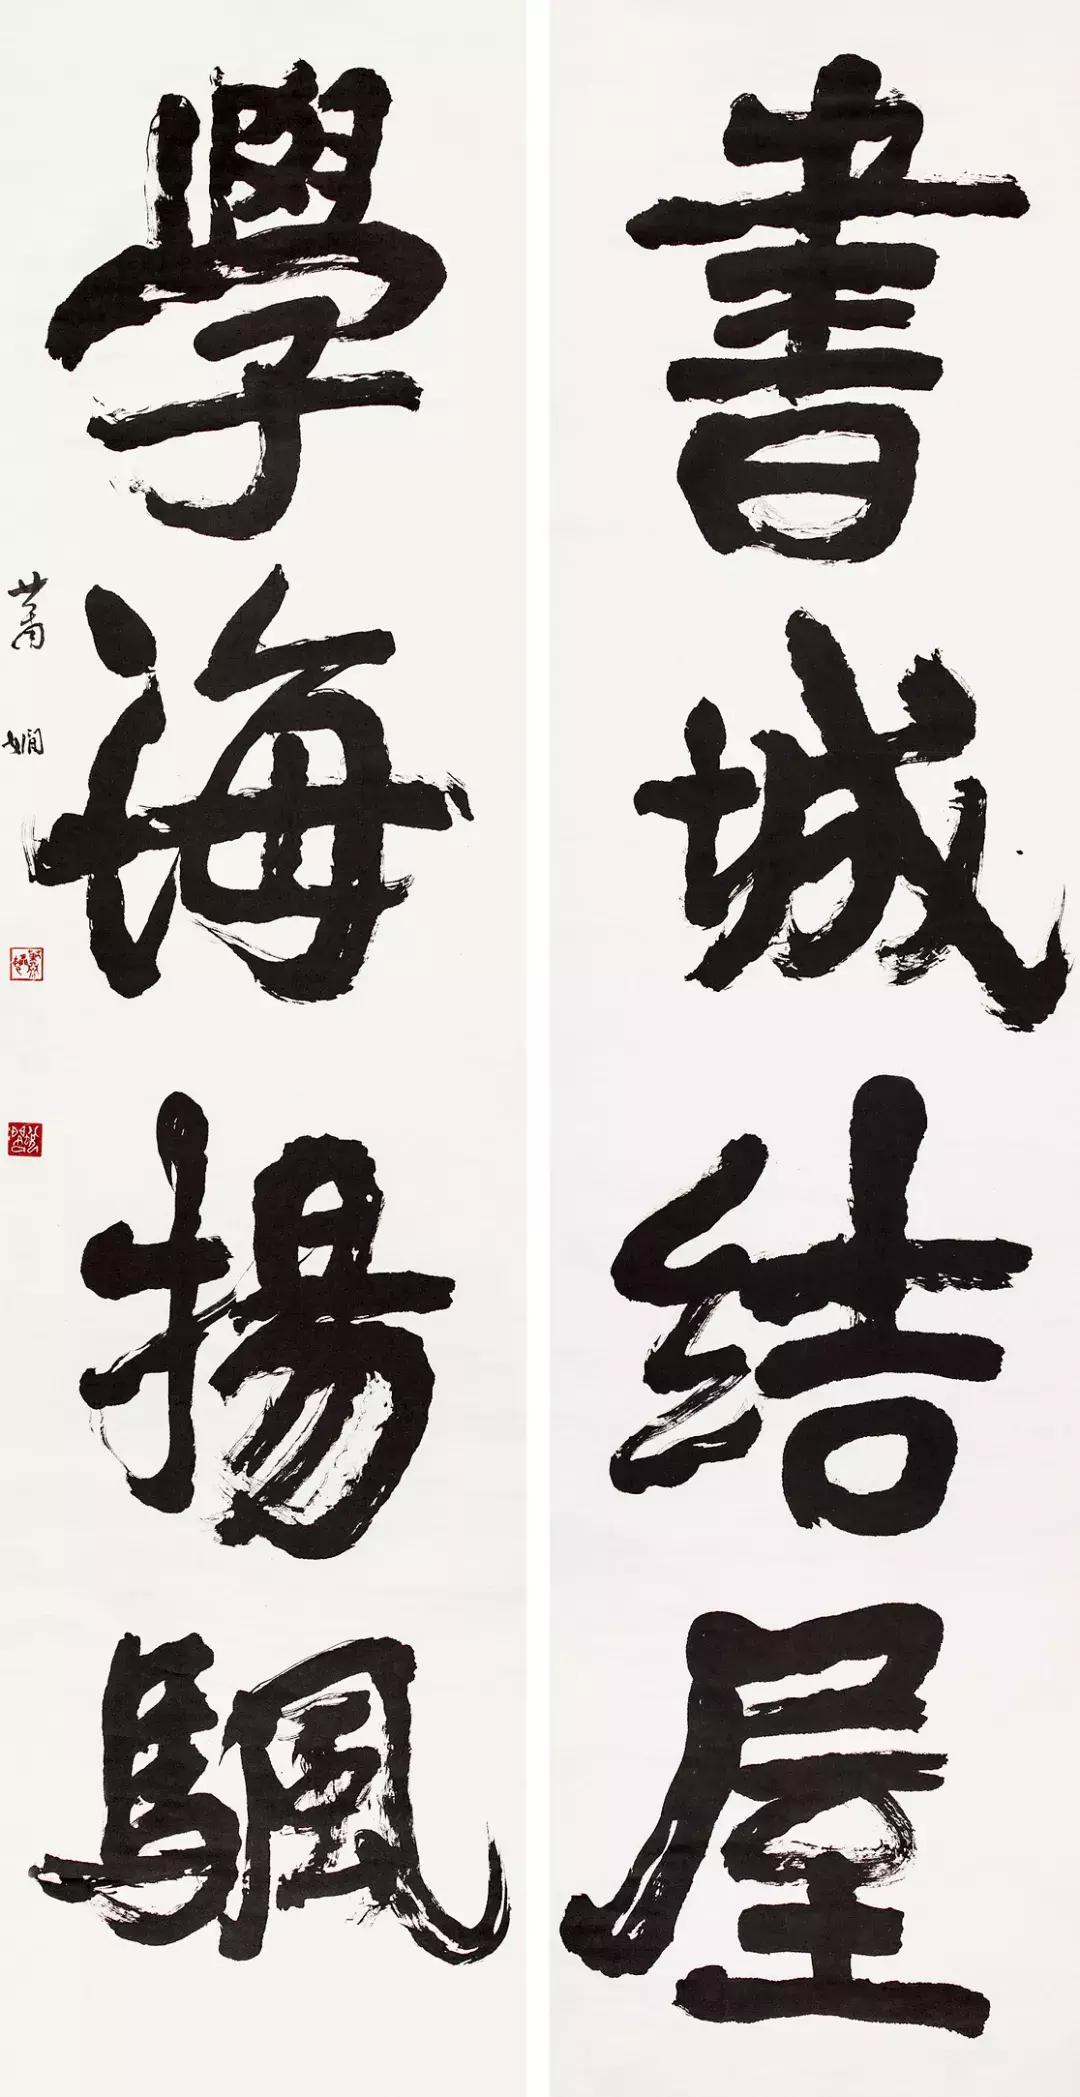 書城結屋
學海揚颿
蕭嫻